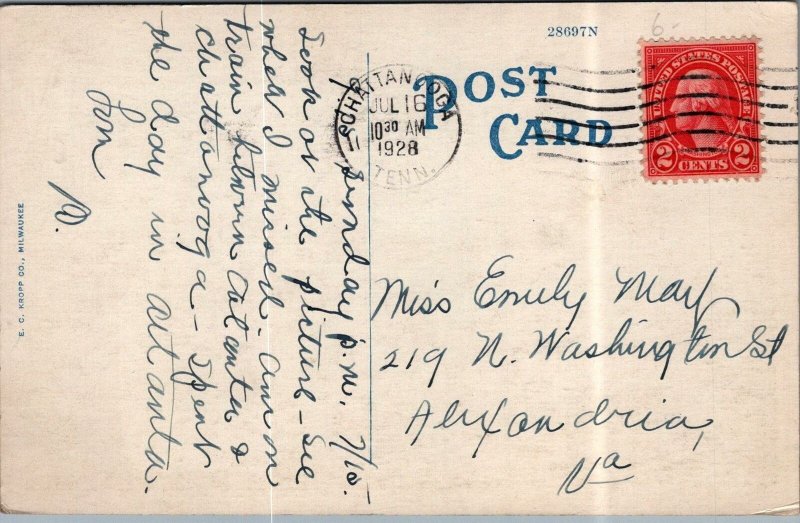 28697N
6-
POST CARD
CHATTANOOGA
JUL 16
10 30 AM
1928
TENN.
UNITED STATES POSTAGE
2 CENTS 2
Sunday p.m. 7/15.
Look at the picture - see
what I missed. Am on
train between Atlanta &
Chattanooga - spent
the day in Atlanta.
M.
Miss Emily May
219 N. Washington St
Alexandria,
Va
E. C. KROPP CO., MILWAUKEE